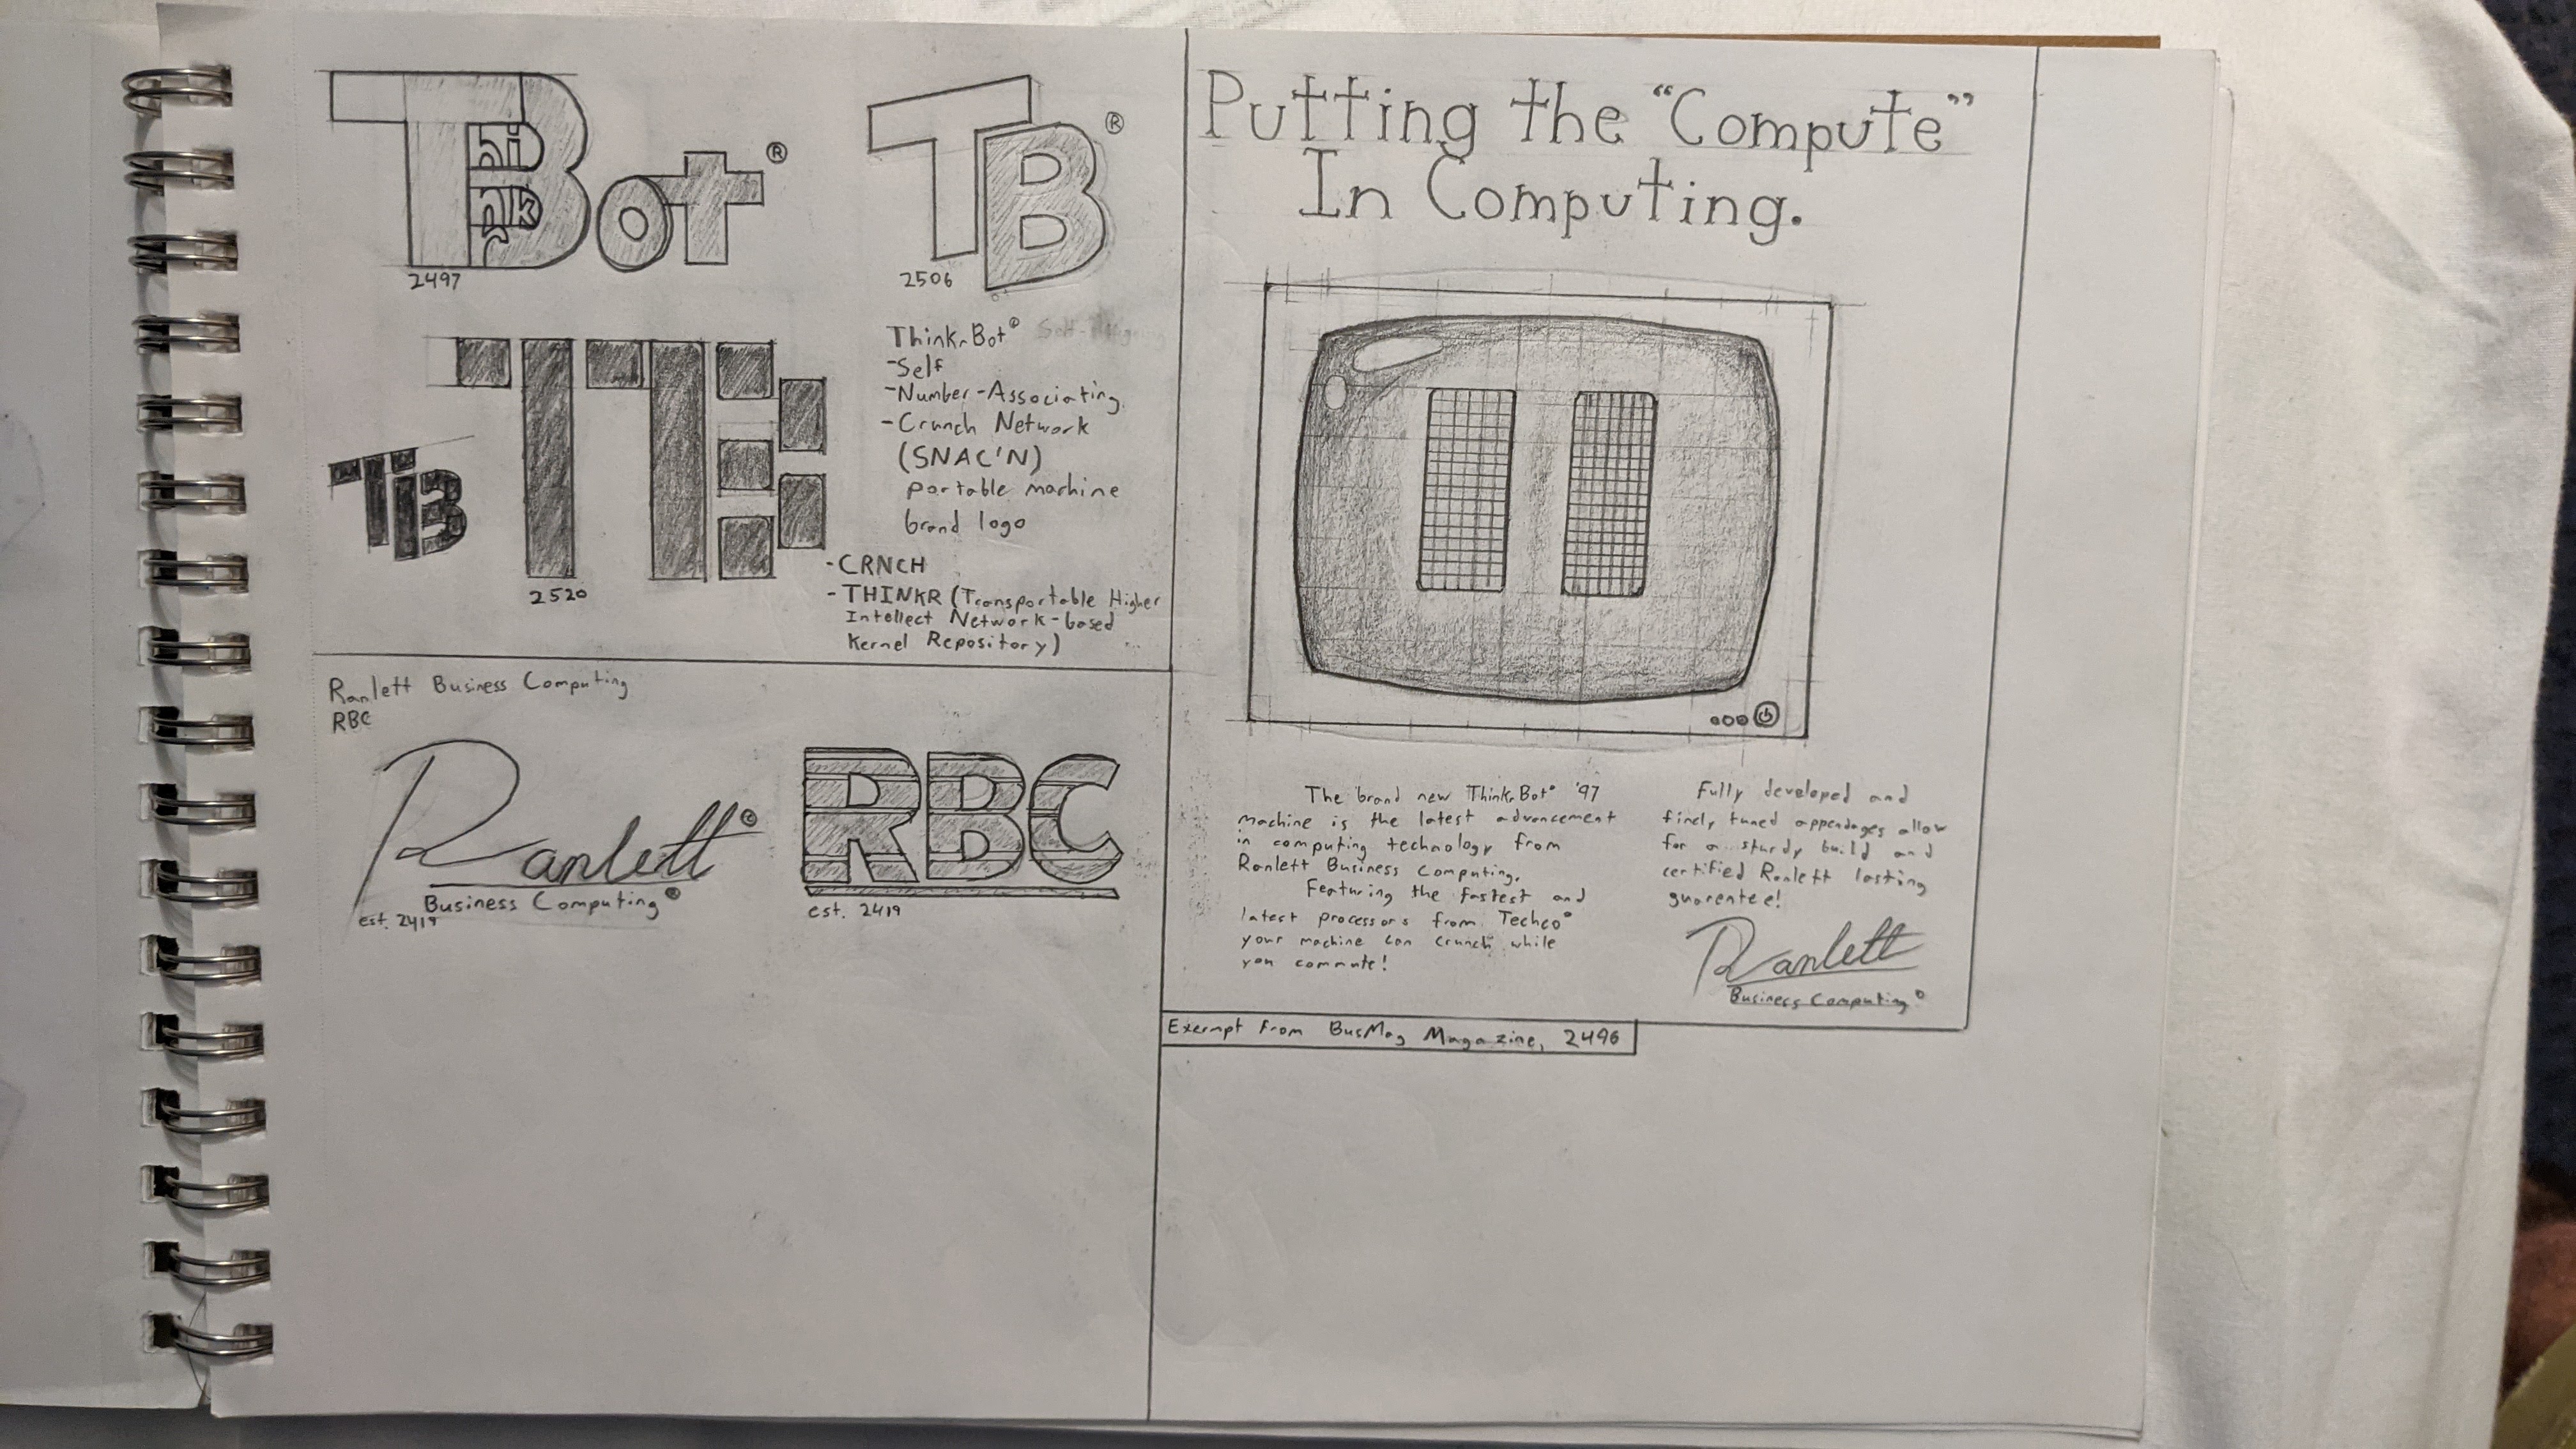 Thinkr Bot ®
2497
TB ®
2506
TiB
TTB
2520
ThinkrBot®
-Self
-Number-Associating
-Crunch Network
(SNAC'N)
portable machine
brand logo
-CRNCH
-THINKR (Transportable Higher
Intellect Network-based
Kernel Repository)
Ranlett Business Computing
RBC
Ranlett©
Business Computing®
est. 2419
RBC
est. 2419
Putting the “Compute”
In Computing.
The brand new ThinkrBot® '97
machine is the latest advancement
in computing technology from
Ranlett Business Computing.
Featuring the fastest and
latest processors from Techco®
your machine can crunch while
you commute!
Fully developed and
finely tuned appendages allow
for a sturdy build and
certified Ranlett lasting
guarentee!
Ranlett
Business Computing®
Exermpt from BusMag Magazine, 2496